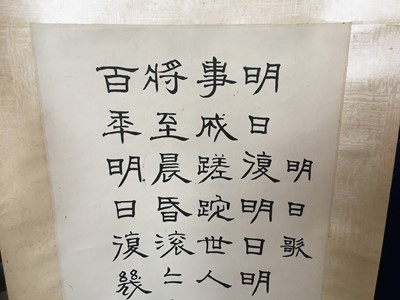 明日歌
明日復明日明
事成蹉跎世人
將至晨昏滾〻
百年明日復幾